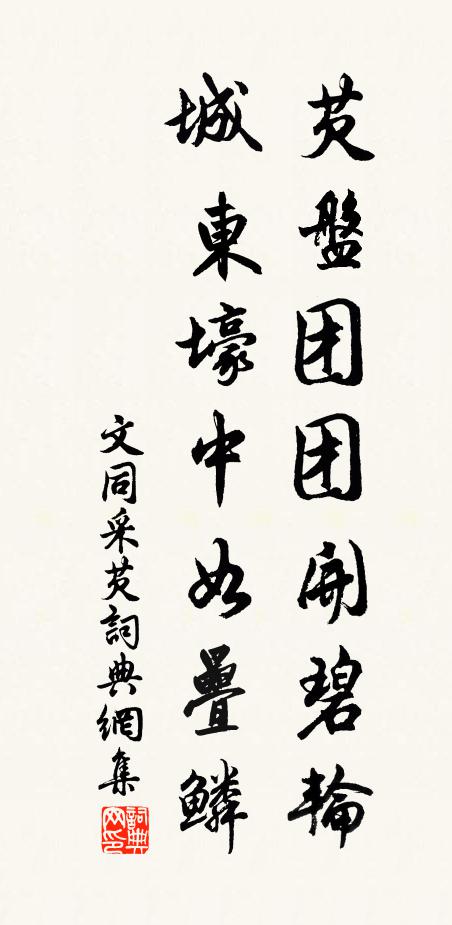 芡盤团团開碧輪
城東壕中如疊鱗
文同采芡詞典網集
詞典网印